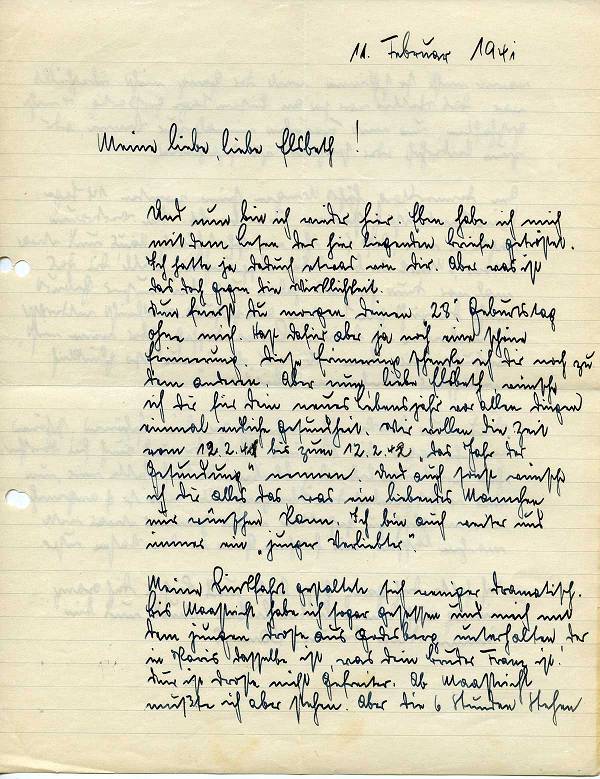 11. Februar 1941
Meine liebe, liebe Elsbeth!
Und nun bin ich wieder hier. Eben habe ich mich
mit dem Lesen der hier liegenden Briefe getröstet.
Ich hatte ja dadurch etwas von Dir. Aber was ist
das doch gegen die Wirklichkeit.
Nun feierst Du morgen Deinen 28. Geburtstag
ohne mich. Hast dafür aber ja noch eine schöne
Erinnerung. Diese Erinnerung schenke ich Dir noch zu
dem anderen. Aber nun, liebe Elsbeth wünsche
ich Dir für Dein neues Lebensjahr vor allen Dingen
einmal endliche Gesundheit. Wir wollen die Zeit
vom 12.2.41 bis zum 12.2.42 „das Jahr der
Gesundung“ nennen. Und auch sonst wünsche
ich Dir alles das was ein liebendes Mannchen
nur wünschen kann. Ich bin auch weiter und
immer ein „junger Verliebter“.
Meine Rückfahrt gestaltete sich weniger dramatisch.
Bis Maastricht habe ich sogar gesessen und mich mit
dem jungen aus Godesberg unterhalten der
in Paris dasselbe ist, was Dein Bruder Franz ist.
Nur ist nicht Gefreiter. Ab Maastricht
mußte ich aber stehen. Aber die 6 Stunden Stehen